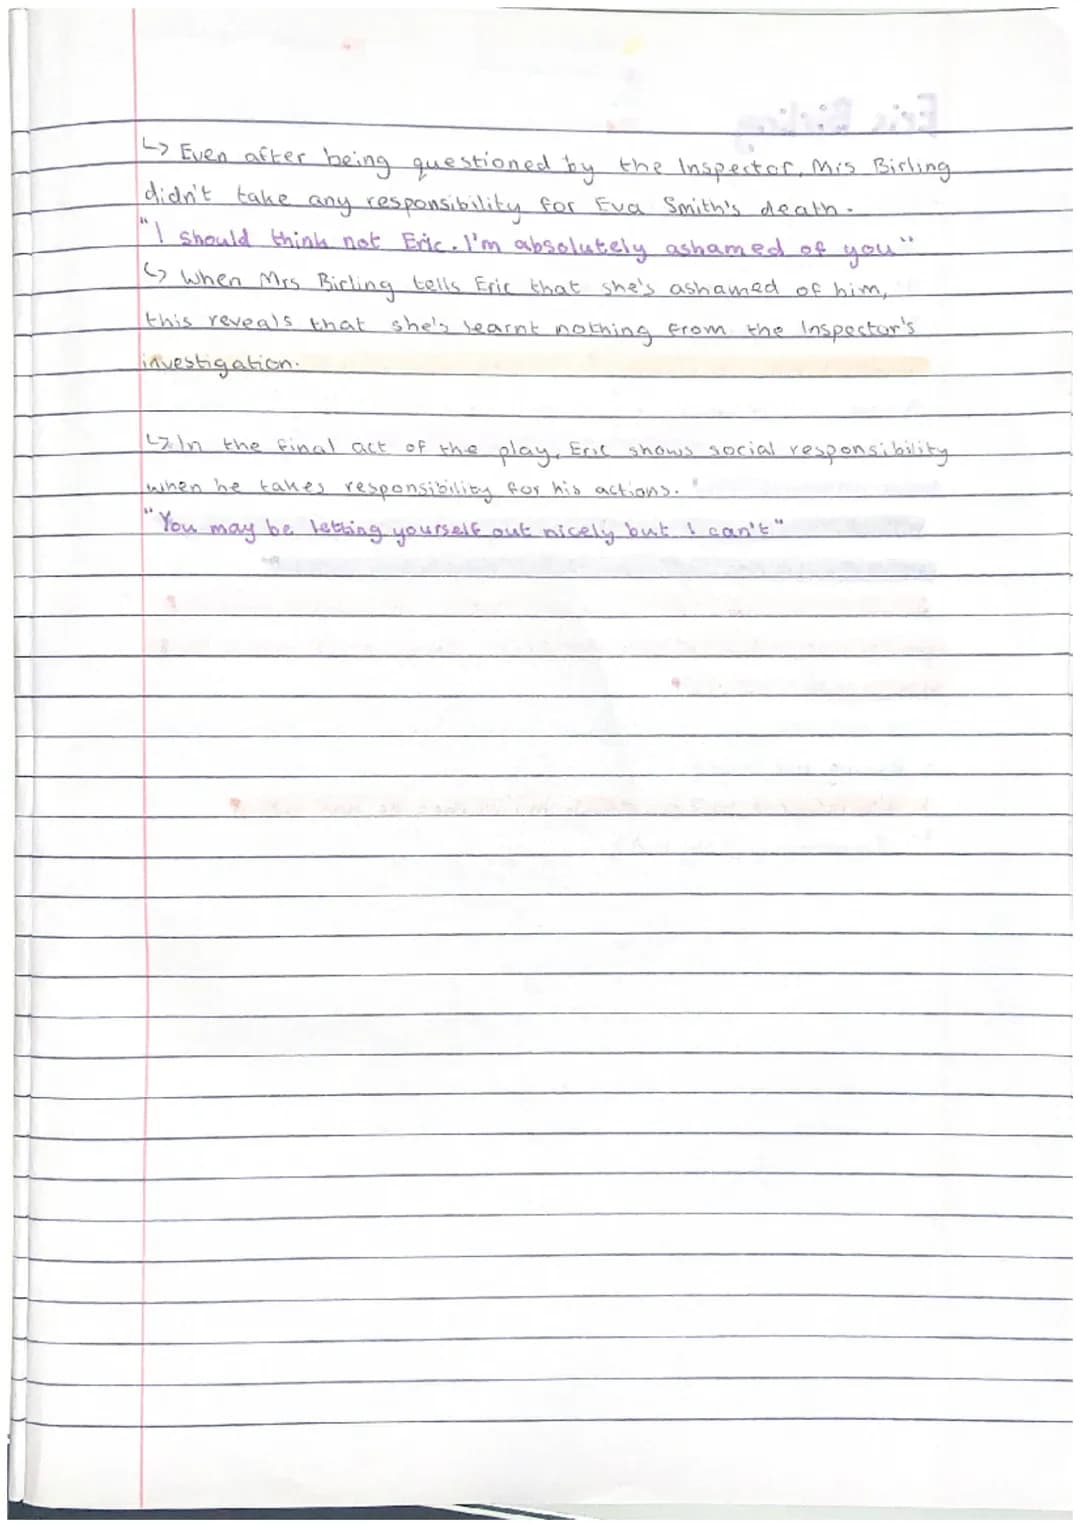 ↳ Even after being questioned by the Inspector, Mrs Birling
didn't take any responsibility for Eva Smith's death.
"I should think not Eric. I'm absolutely ashamed of you"
↳ When Mrs Birling tells Eric that she's ashamed of him,
this reveals that she's learnt nothing from the Inspector's
investigation.
↳ In the final act of the play, Eric shows social responsibility
when he takes responsibility for his actions.
"You may be letting yourself out nicely but I can't"